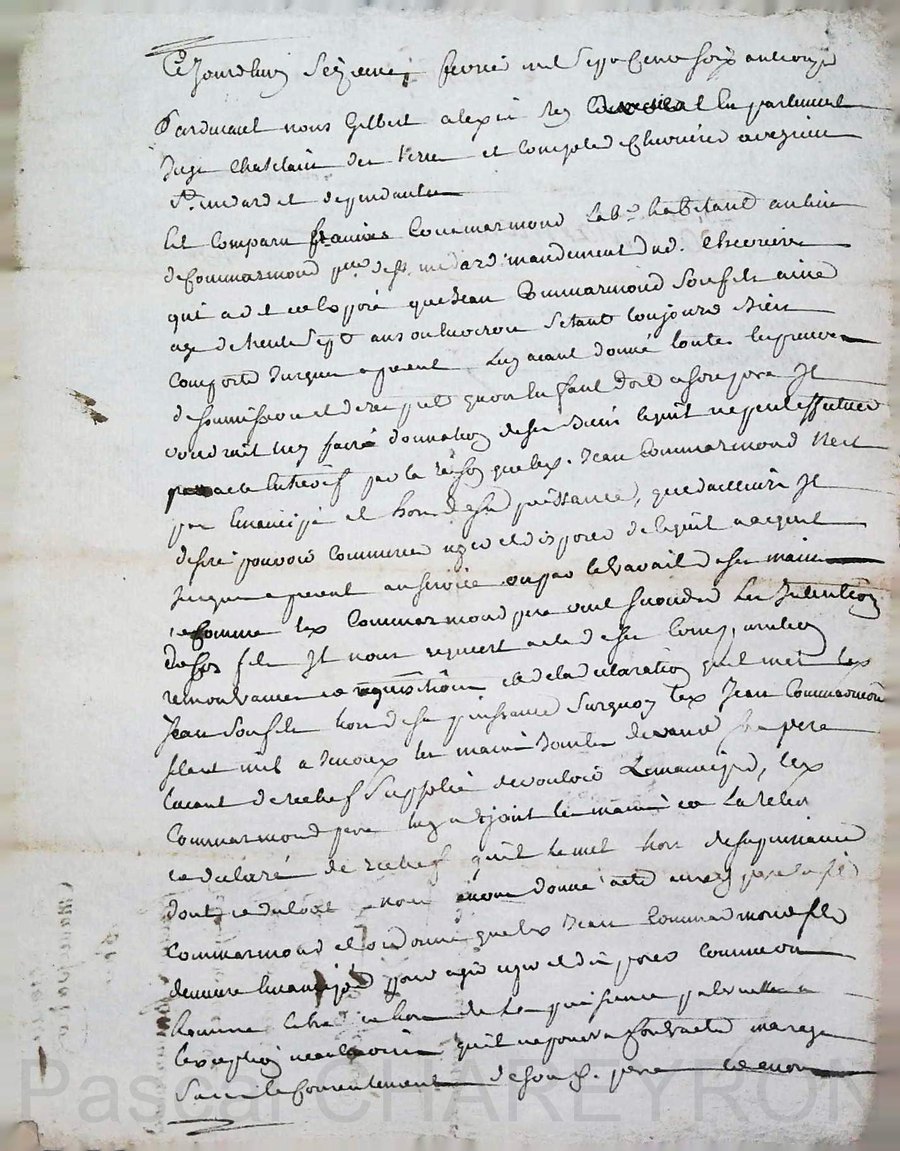 Ce Jourdhuy Seizieme fevrier mil Sept Cent Soix ante onze
Pardevant nous Gilbert alexis Rey en parlement
Juge Chatelain de et Comptés Chevrieres
St. medard et dependantes
Est Comparu francois Commarmond lab.r habitant au lieu
de Commarmond p.sse de St. medard mandement dud. Chevriere
qui a dit et exposé que Jean Commarmond Son fils ainé
agé de trente Sept ans ou environ Setant toujours bien
Comporté Jusques apresent Luy ayant donné toutes les preuves
de Soumission et de respect quon Enfant doit a Son pere Jl
voudrait luy faire donnation de Ses biens ce quil ne peut effectuer
par la raison que led. Jean Commarmond nest
pas Emancipé et hors de Sa puissance, que dailleurs Jl
desire pouvoir Commercer agir et disposer de ce quil a acquis
Jusques apresent au Service ou par le travail de Ses mains
Comme led. Commarmond pere veut Seconder les Jntentions
de Son fils Jl nous requiert acte de Ses Comparution
remontrance requisition et de la declaration quil met led
Jean Son fils hors de Sa puissance Surquoy led Jean Commarmond
Setant mis a Genoux les mains Jointes devant Son pere
Layant derechef Supplié de vouloir Lemanciper, led
Commarmond pere luy a disjoint les mains et La relevé
et declaré de rechef quil le met hors de Sa puissance
dont nous avons donné acte auxd pere et fils
Commarmond et ordonné que led Jean Commarmond fils
demeure Emancipé pour agir et disposer Comme un
homme libre et hors de la puissance paternelle a
lexception neanmoins quil ne pourra Contracter mariage
Sans le Consentement de Sond. pere
Pascal CHAREYRON